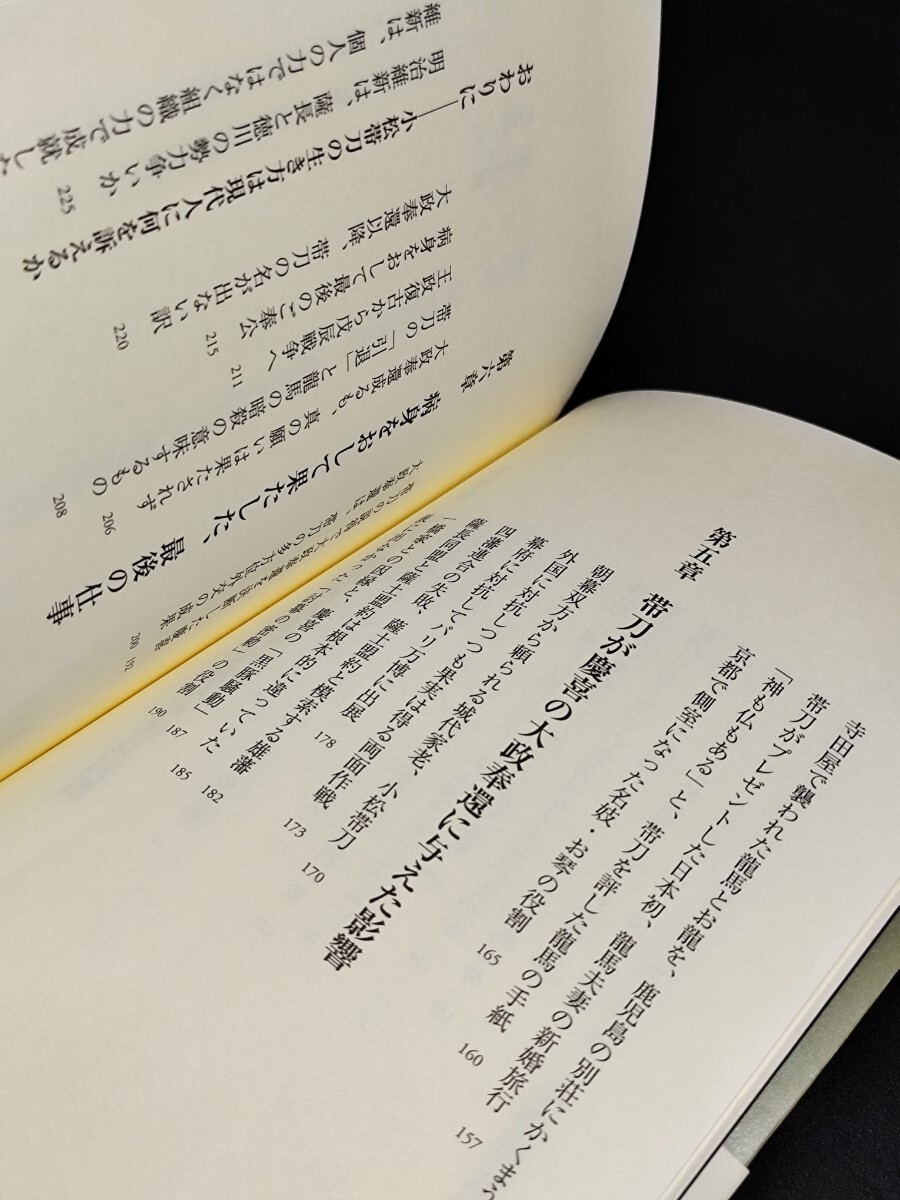 寺田屋で襲われた龍馬とお龍を、鹿児島の別荘にかくまう
帯刀がプレゼントした日本初、龍馬夫妻の新婚旅行 157
「神も仏もある」と、帯刀を評した龍馬の手紙 160
京都で側室になった名妓・お琴の役割 165
第五章 帯刀が慶喜の大政奉還に与えた影響
朝幕双方から頼られる城代家老、小松帯刀 170
外国に対抗しつつも果実は得る両面作戦 173
幕府に対抗してパリ万博に出展 178
四藩連合の失敗、薩土盟約と模索する雄藩 182
薩長同盟と薩土盟約は根本的に違っていた 185
一橋家との因縁と、慶喜の「黒豚騒動」 187
表に出なかった「討幕の密勅」の役割 190
帯刀の説得で大政奉還を決断した慶喜 192
大政奉還は、帯刀の多方位外交の成果 200
第六章 病身をおして果たした、最後の仕事
大政奉還成るも、真の願いは果たされず 206
帯刀の「引退」と龍馬の暗殺の意味するもの 208
王政復古から戊辰戦争へ 211
病身をおして最後のご奉公 215
大政奉還以降、帯刀の名が出ない訳 220
おわりに――小松帯刀の生き方は現代人に何を訴えるか
明治維新は、薩長と徳川の勢力争いか 225
維新は、個人の力ではなく組織の力で成就した